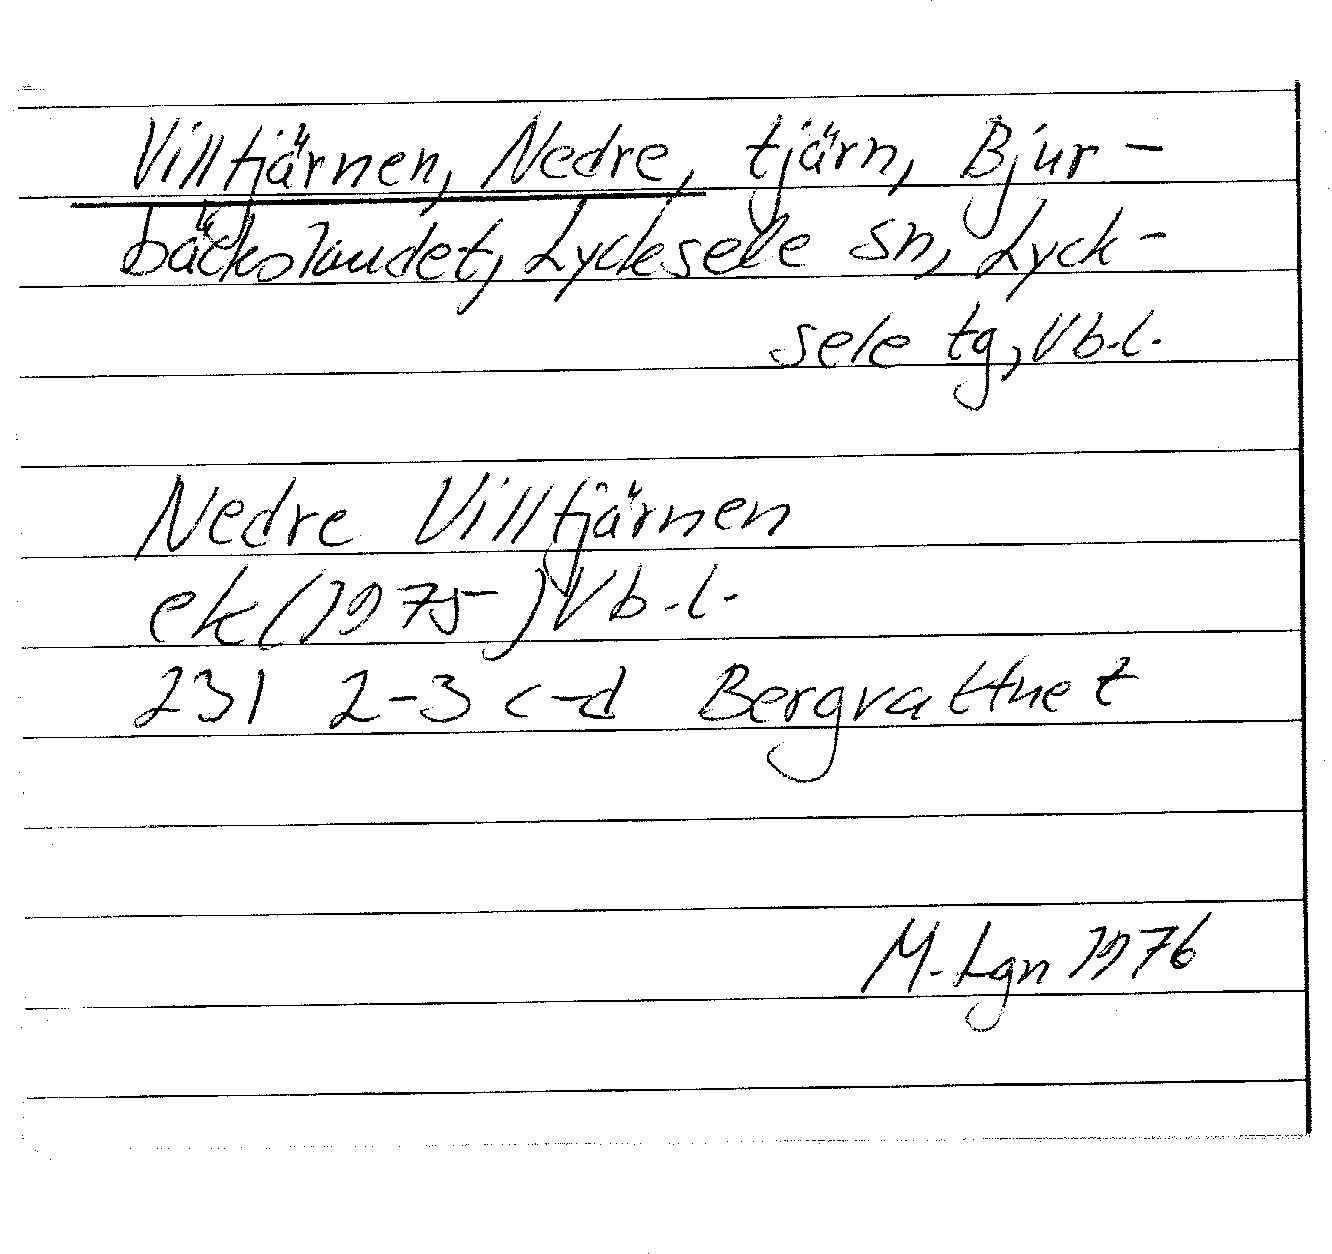 Villtjärnen, Nedre, tjärn, Bjur-
bäckslandet, Lycksele sn, Lyck-
sele tg, Vb.l.
Nedre Villtjärnen
ek (1975) Vb.l.
23I 2-3 c-d Bergvattnet
M. Lgn 1976